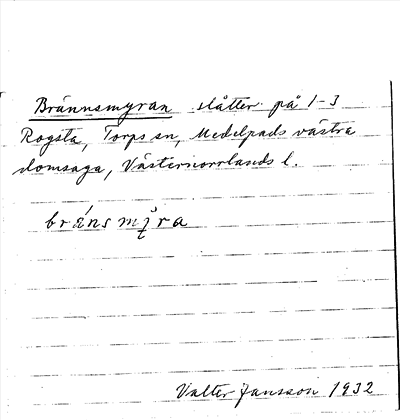 Brännsmyran slåtter på 1-3
Rogsta, Torps sn, Medelpads västra
domsaga, Västernorrlands l.
bräns myra
Valter Jansson 1932